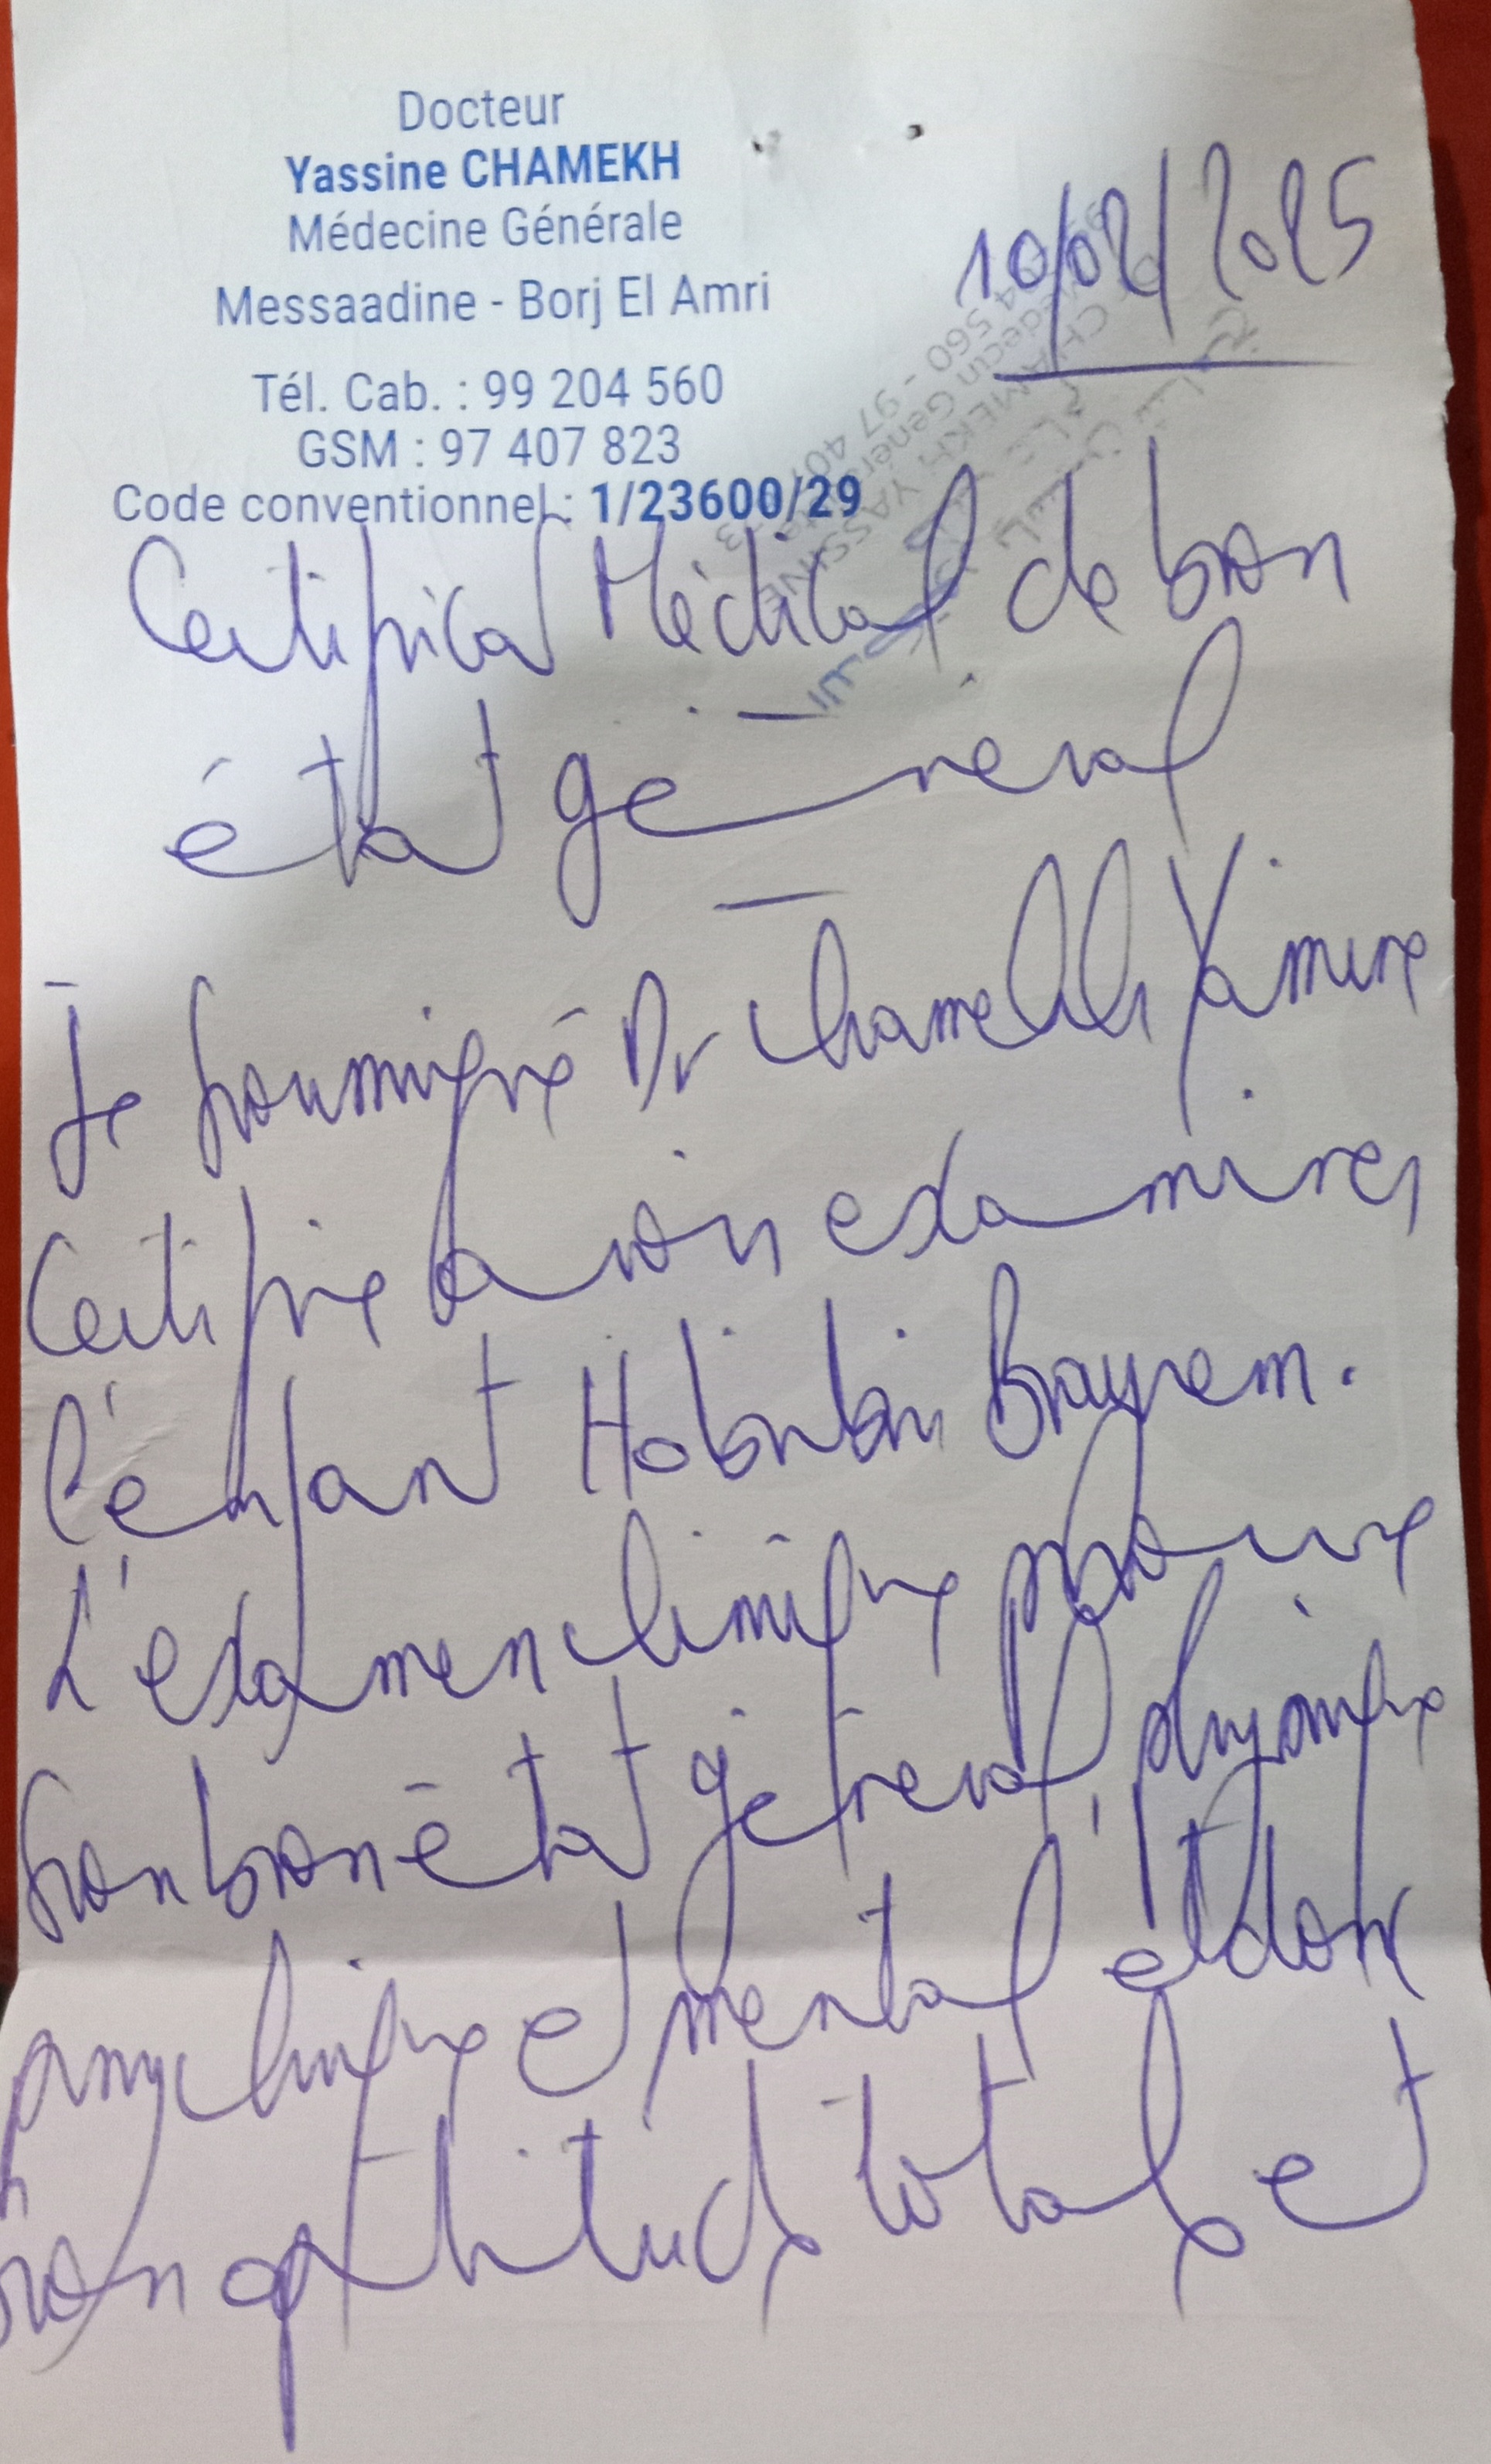 Docteur
Yassine CHAMEKH
Médecine Générale
Messaadine - Borj El Amri
Tél. Cab. : 99 204 560
GSM : 97 407 823
Code conventionnel : 1/23600/29
10/02/2025
Certificat Médical de bon
état général
Je soussigné Dr Chamekh Yassine
Certifie avoir examiner
l'enfant Brayem.
L'examen clinique prouve
son bon état général, physique
psychique et mental et donc
son aptitude totale et